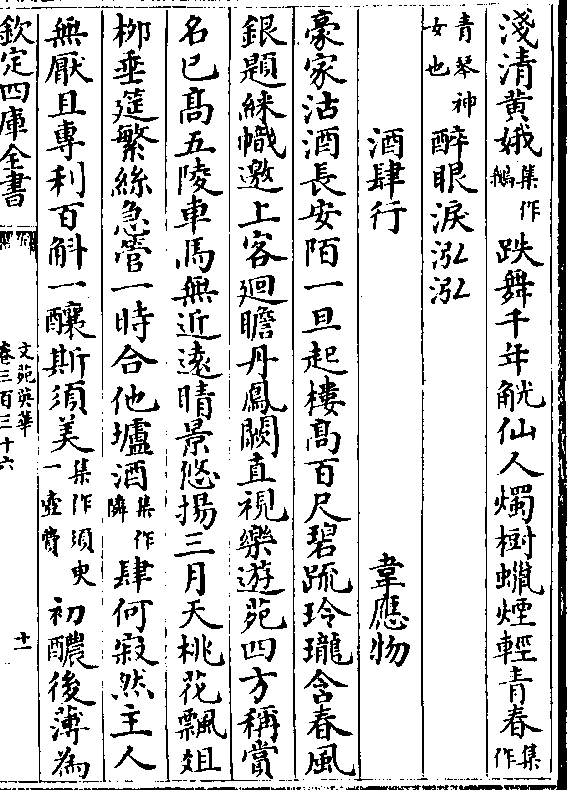 淺清黄娥集作鵝跌舞千年觥仙人燭樹蠟煙輕青春集作
青琴神女也醉眼淚泓泓
酒肆行　韋應物
豪家沽酒長安陌一旦起樓髙百尺碧䟽玲瓏含春風
銀題綵幟邀上客迴瞻丹鳳闕直視樂遊苑四方稱賞
名已髙五陵車馬無近逺晴景悠揚三月天桃花飄俎
栁垂筵繁絲急管一時合他壚酒集作隣肆何寂然主人
無厭且專利百斛一釀斯須美集作須臾一壺費初醲後薄為
欽定四庫全書
文苑英華
卷三百三十六
十一